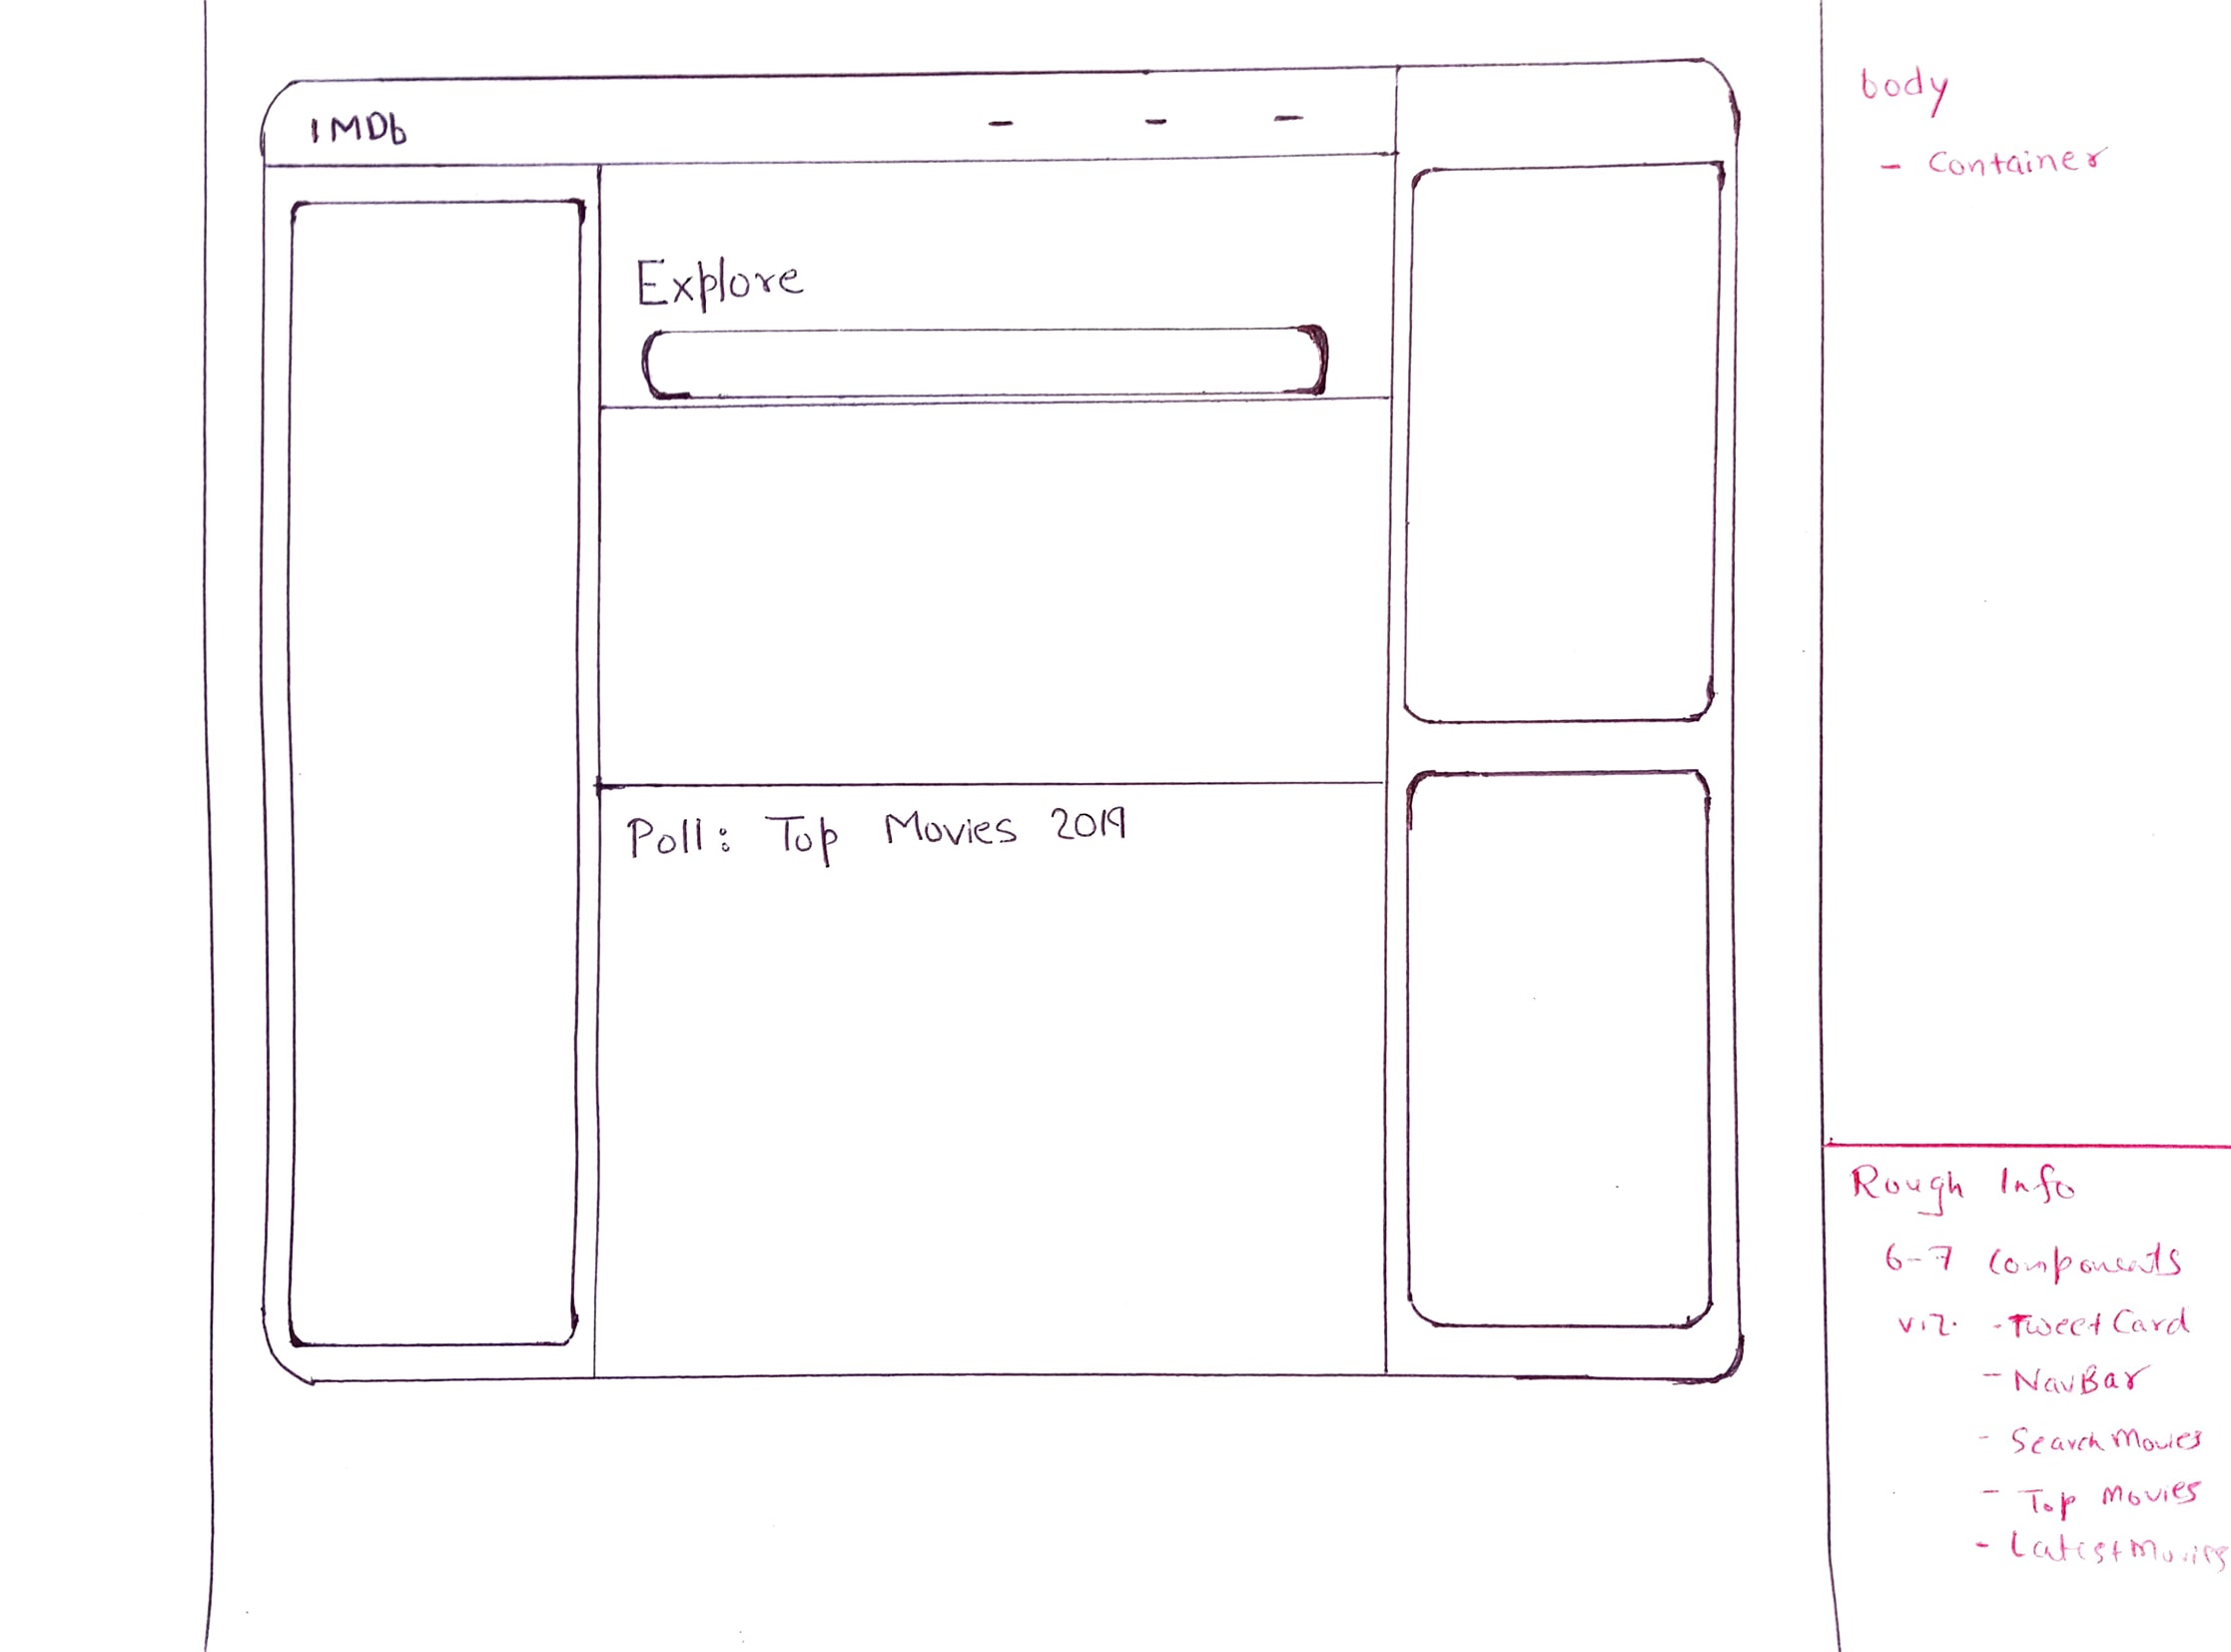 IMDb - - -
Explore
Poll: Top Movies 2019
body
- Container
Rough Info
6-7 Components
viz. - TweetCard
- NavBar
- SearchMovies
- Top Movies
- LatestMovies